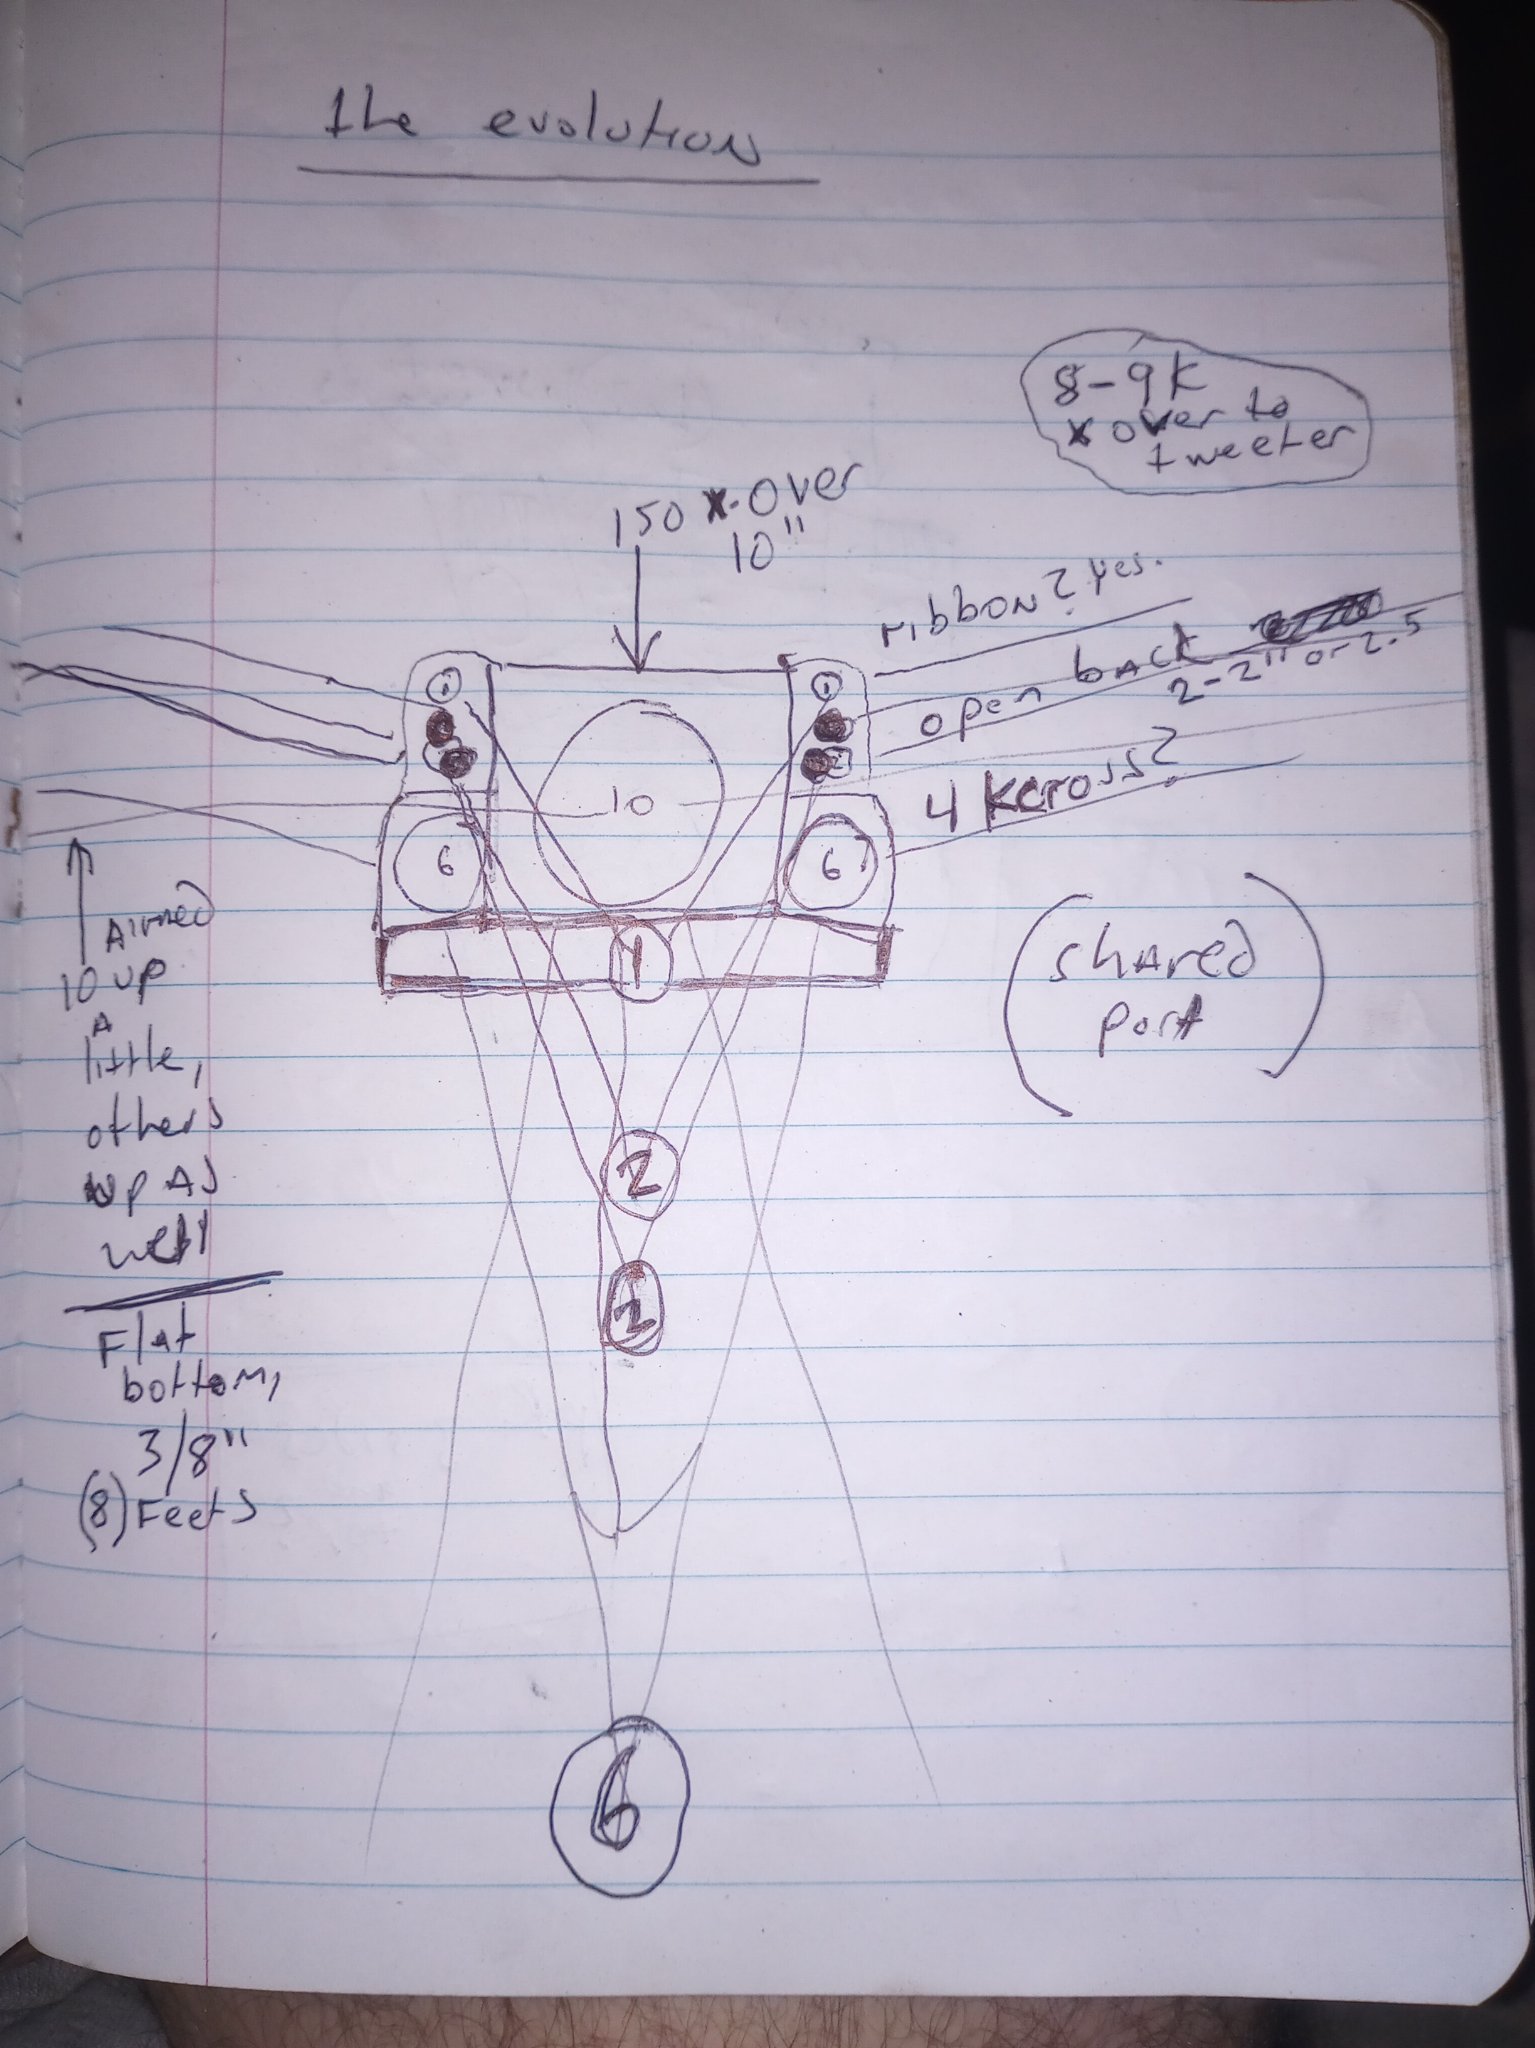 the evolution
8-9K
x over to
tweeter
150 x-over
10"
ribbon? yes.
open back
2-2" or 2.5
4 Kcross?
1
1
2
10
6
6
Aimed
10 up
A
little,
others
up As
well
(shared
port)
1
2
2
Flat
bottom,
3/8"
(8) Feets
6